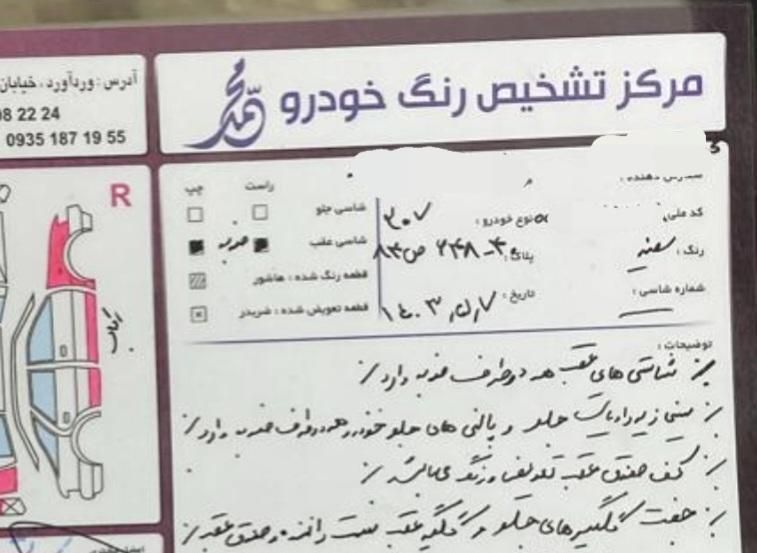 آدرس : وردآورد ، خیابان
08 22 24
0935 187 19 55
محمد
مرکز تشخیص رنگ خودرو
R
رکاب
راست
چپ
شاسی جلو
شاسی عقب
ضربه
قطعه رنگ شده : هاشور
قطعه تعویض شده : ضربدر
کد ملی :
نوع خودرو : ۳۰۷
رنگ : سفید
پلاک :
شماره شاسی :
تاریخ :
توضیحات :
شاسی های عقب هر دو طرف ضربه دارد
سینی زیر رادیات جلو و پالنی های جلو خودرو هر دو طرف ضربه دارد
کف صندوق عقب تعویض و رنگ
جفت گلگیرهای جلو و گلگیر عقب سمت راننده و صندوق عقب